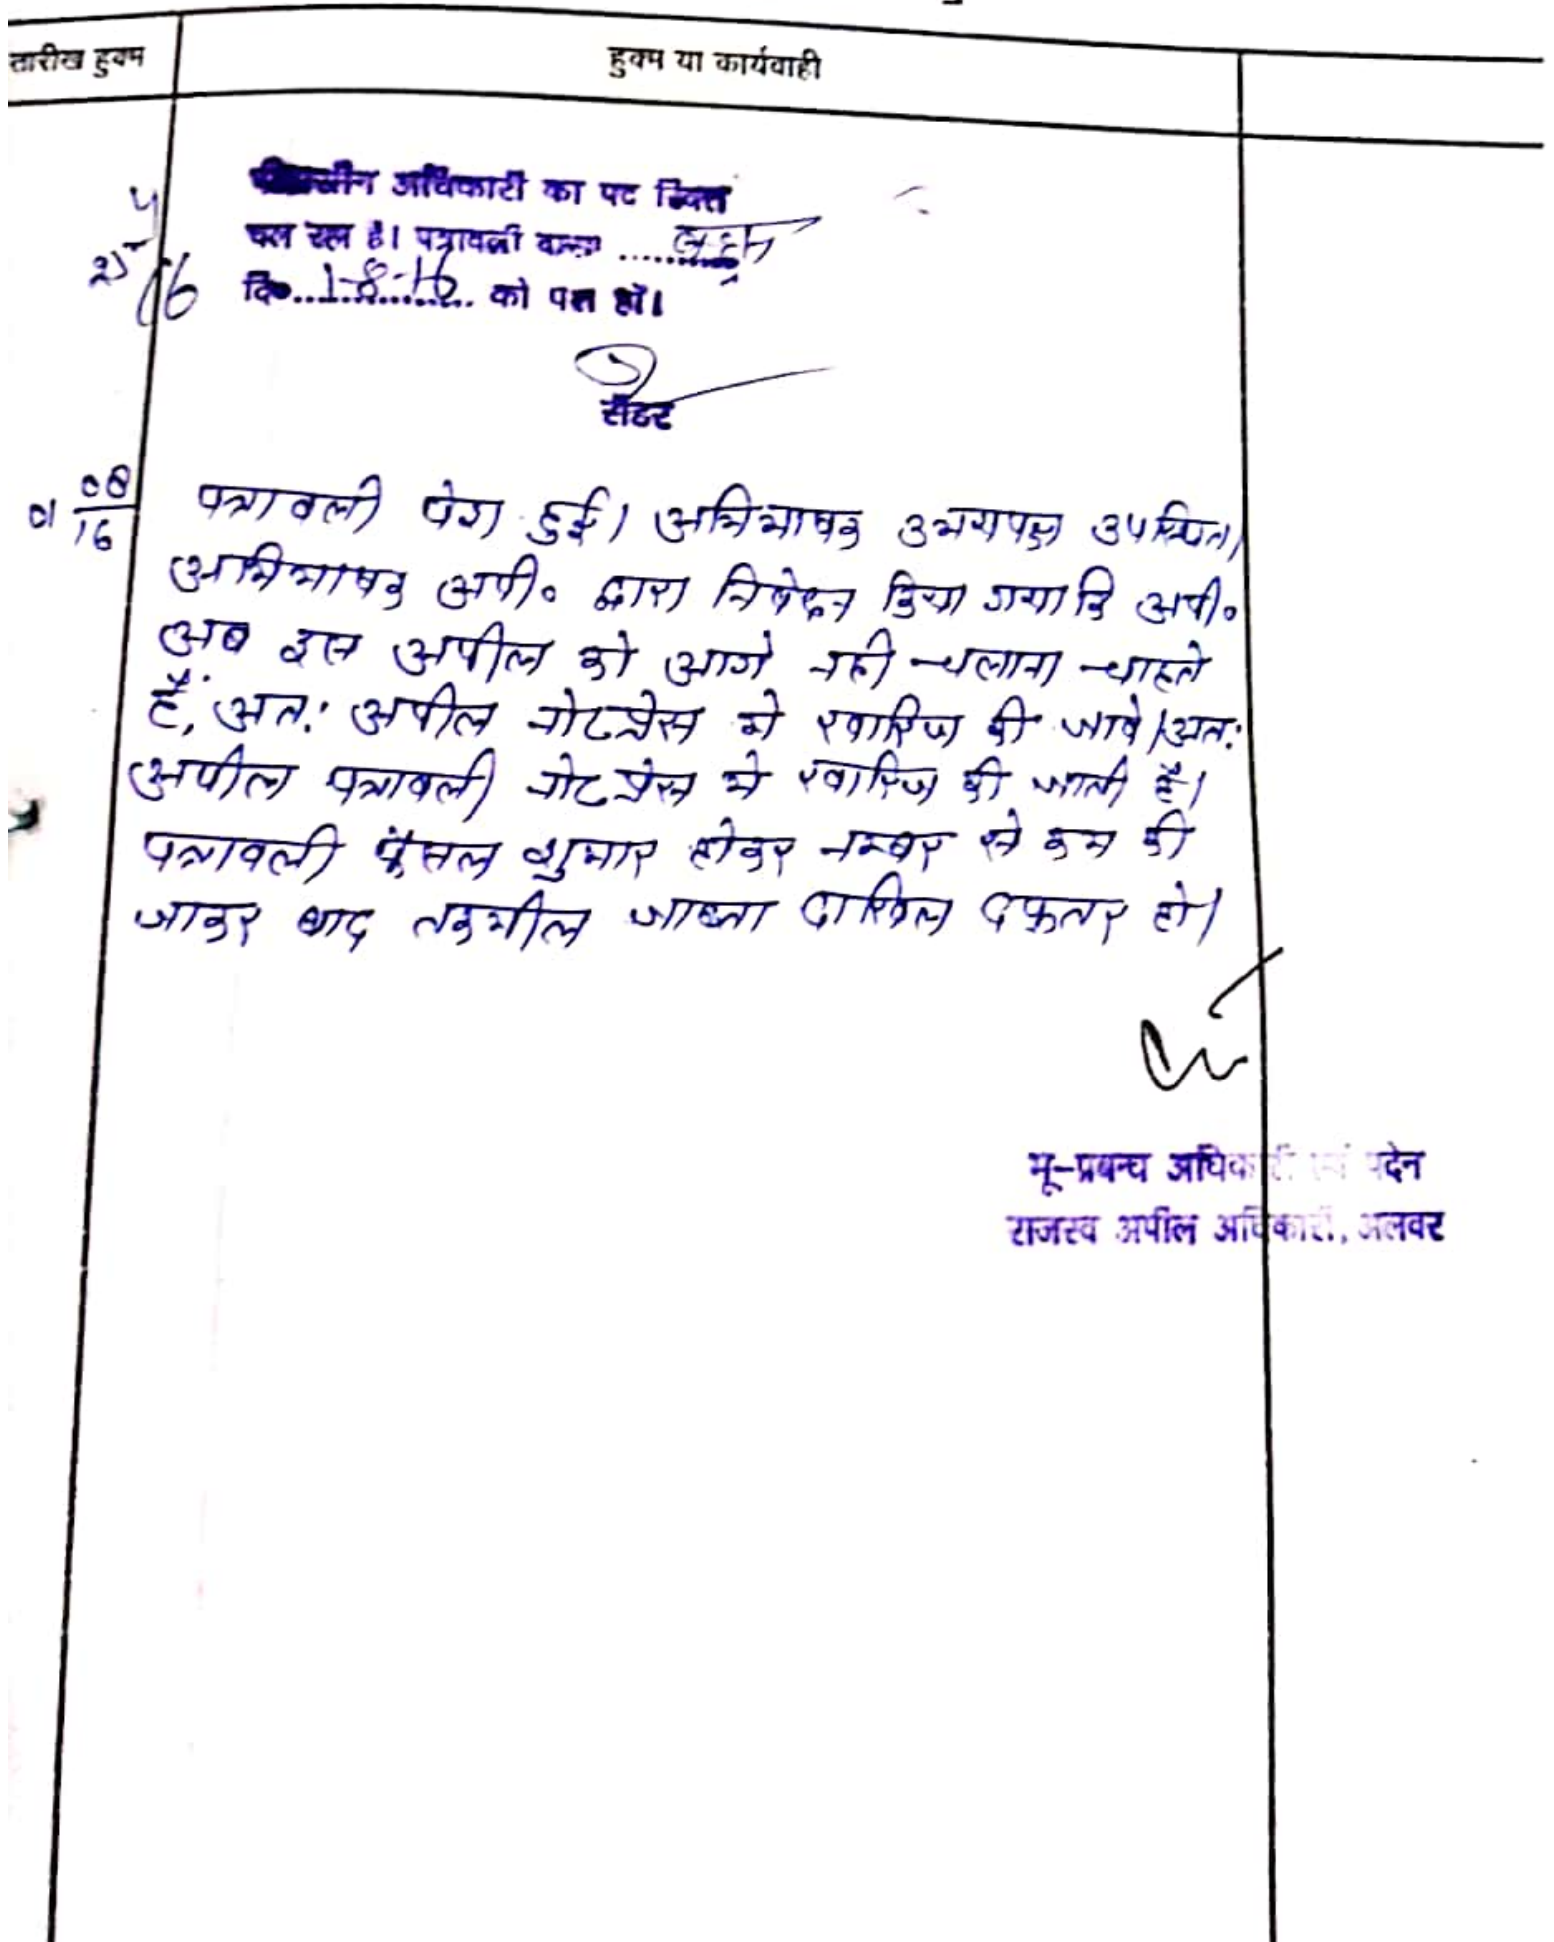 तारीख हुक्म
हुक्म या कार्यवाही
अधिकारी का पद रिक्त
चल रहा है। पत्रावली वास्ते ..... बहस
दि० 1-8-16 को पेश हो।
रीडर
01 08/16
पत्रावली पेश हुई। अभिभाषक उभयपक्ष उपस्थित।
अभिभाषक अपी० द्वारा निवेदन किया गया कि अपी०
अब इस अपील को आगे नही चलाना चाहते
हैं, अतः अपील नोटप्रेस मे खारिज की जावे। अतः
अपील पत्रावली नोटप्रेस मे खारिज की जाती है।
पत्रावली फैसल शुमार होकर नम्बर से कम की
जाकर बाद तकमील जाब्ता दाखिल दफ्तर हो।
भू-प्रबन्ध अधिकारी एवं पदेन
राजस्व अपील अधिकारी, अलवर